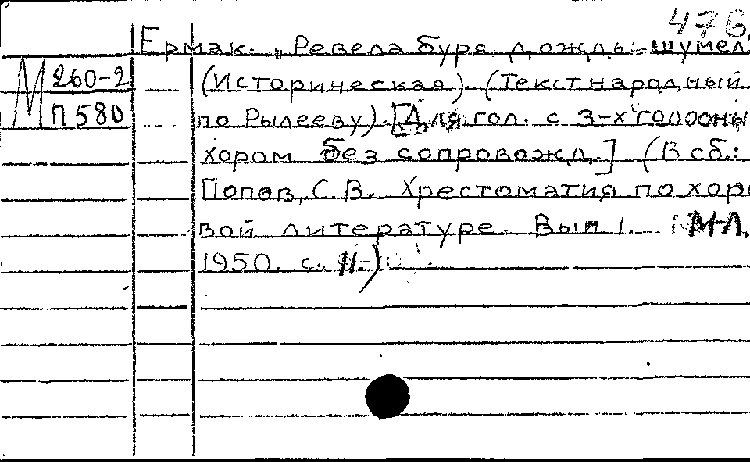 476
Ермак. „Ревела буря, дождь шумел
М 260-2 (Историческая). (Текст народный
П 580 по Рылееву). [Для гол. с 3-х голосны
хором без сопровожд.] (В сб.:
Попов, С.В. Хрестоматия по хоро
вой литературе. Вып 1. М-Л.
1950. с. 11-)